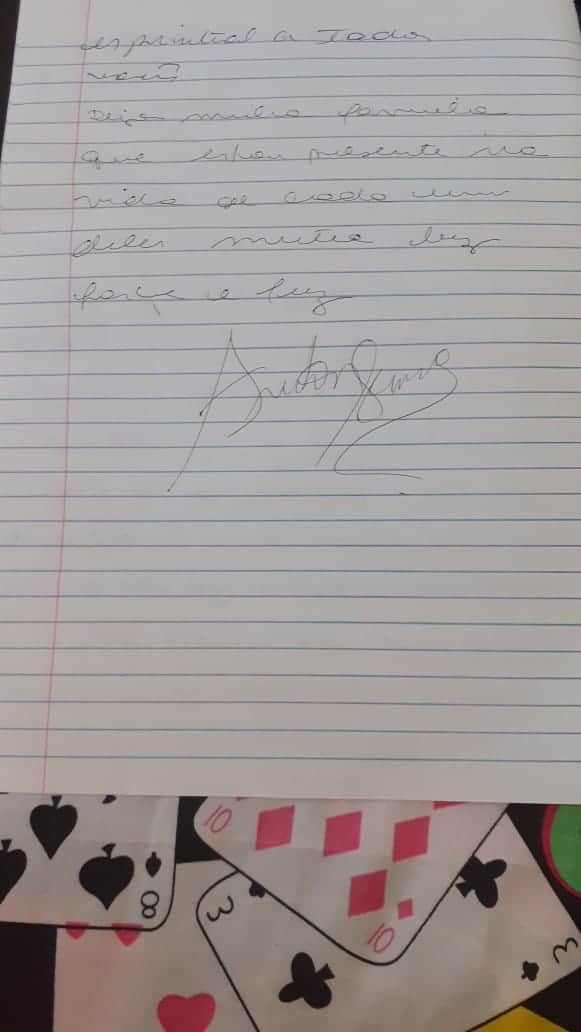 espiritial a Todos
voces
Diga minha familia
que estou presente na
vida de cada um
deles muita luz
força e luz
8
10
10
3
3